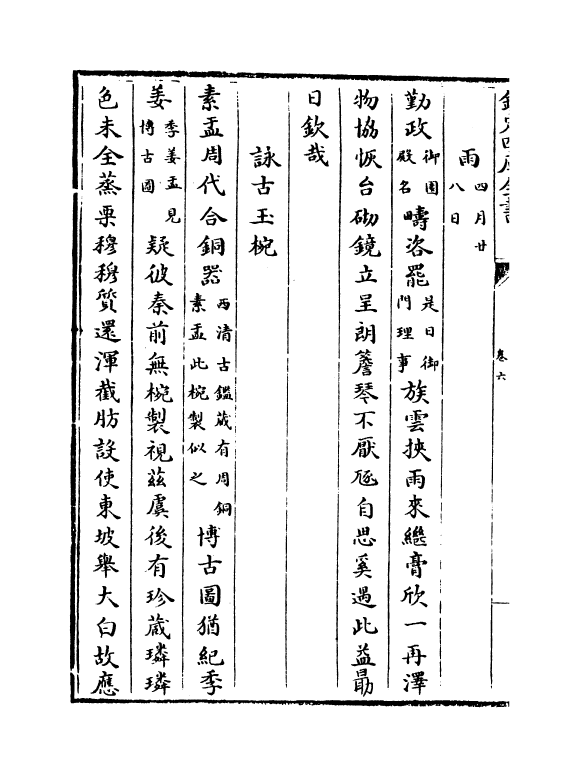 欽定四庫全書
卷六
雨四月廿八日
勤政御園殿名疇咨罷是日御門理事族雲挾雨來繼膏欣一再澤
物協恢台砌鏡立呈朗簷琴不厭豗自思奚遇此益勗
日欽哉
詠古玉椀
素盂周代合銅器西清古鑑蔵有周銅素盂此椀製似之博古圖猶紀季
姜季姜盂見博古圖疑彼秦前無椀製視茲虞後有珍蔵璘璘
色未全蒸栗穆穆質還渾截肪設使東坡舉大白故應